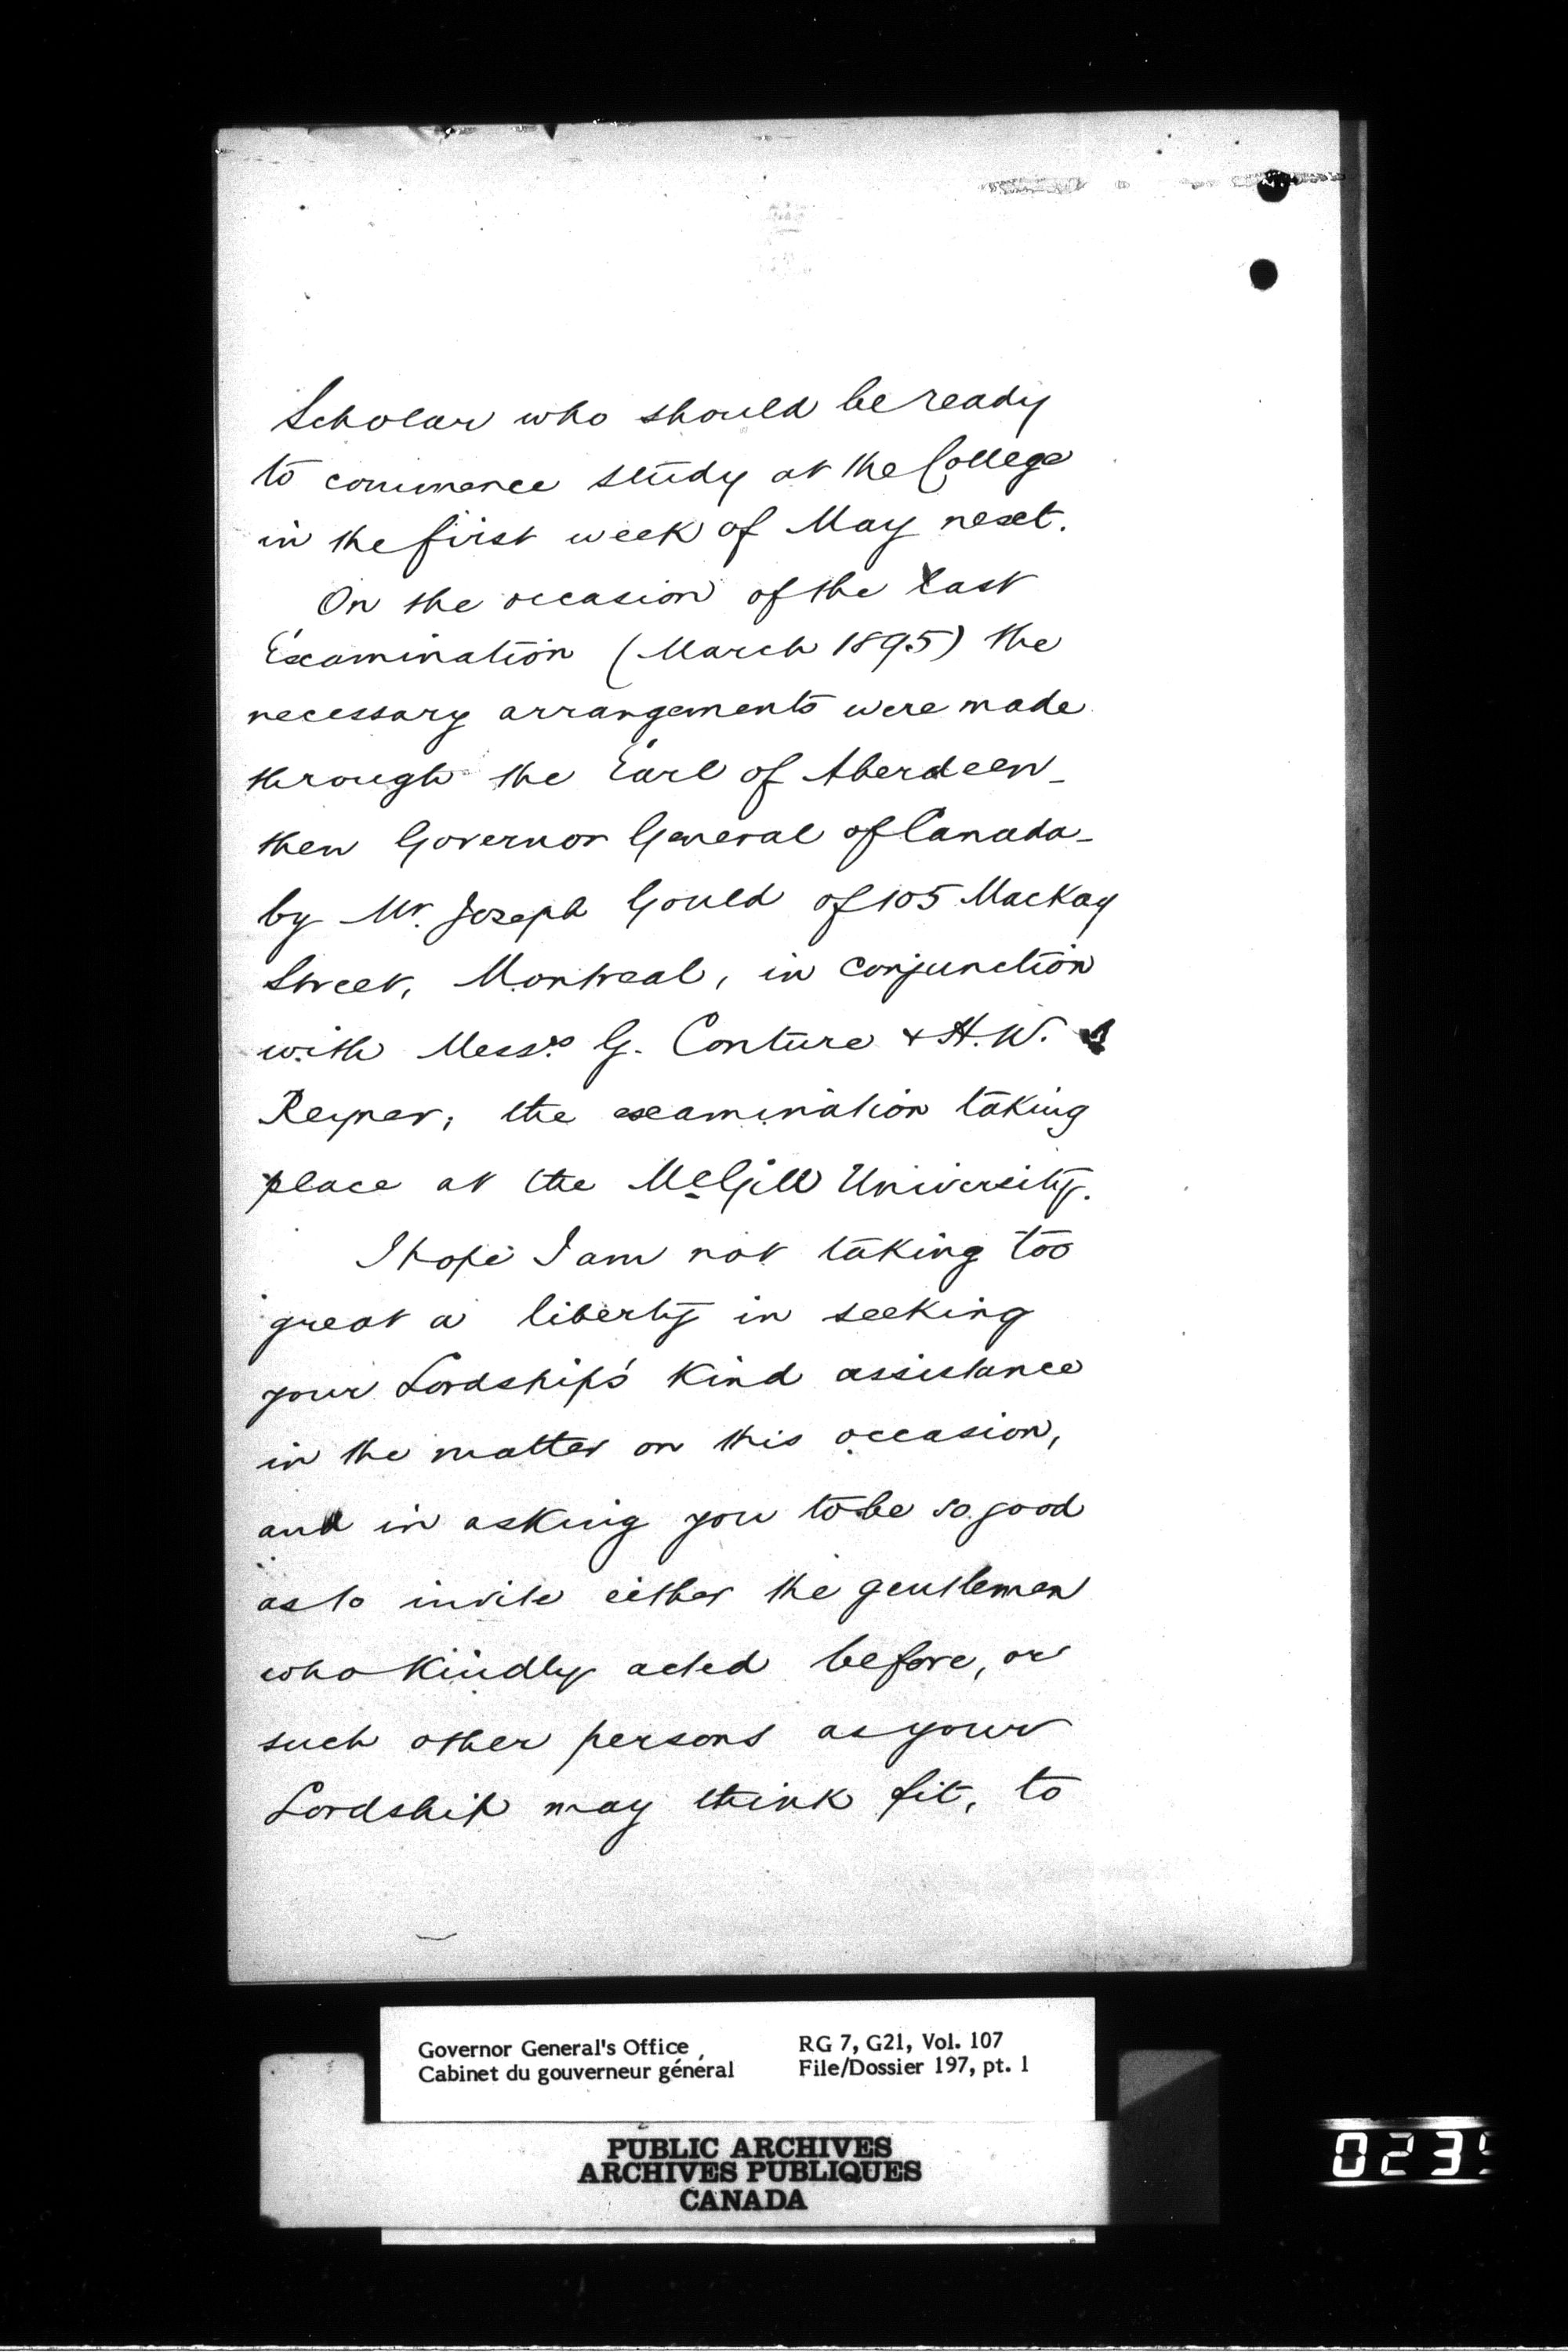 Scholar who should be ready
to commence study at the College
in the first week of May next.
On the occasion of the last
Examination (March 1895) the
necessary arrangements were made
through the Earl of Aberdeen -
then Governor General of Canada -
by Mr. Joseph Gould of 105 Mackay
Street, Montreal, in conjunction
with Messrs G. Couture & H.W.
Reyner, the examination taking
place at the McGill University.
I hope I am not taking too
great a liberty in seeking
your Lordship's kind assistance
in the matter on this occasion,
and in asking you to be so good
as to invite either the gentlemen
who kindly acted before, or
such other persons as your
Lordship may think fit, to
Governor General's Office
Cabinet du gouverneur général
RG 7, G21, Vol. 107
File/Dossier 197, pt. 1
PUBLIC ARCHIVES
ARCHIVES PUBLIQUES
CANADA
023